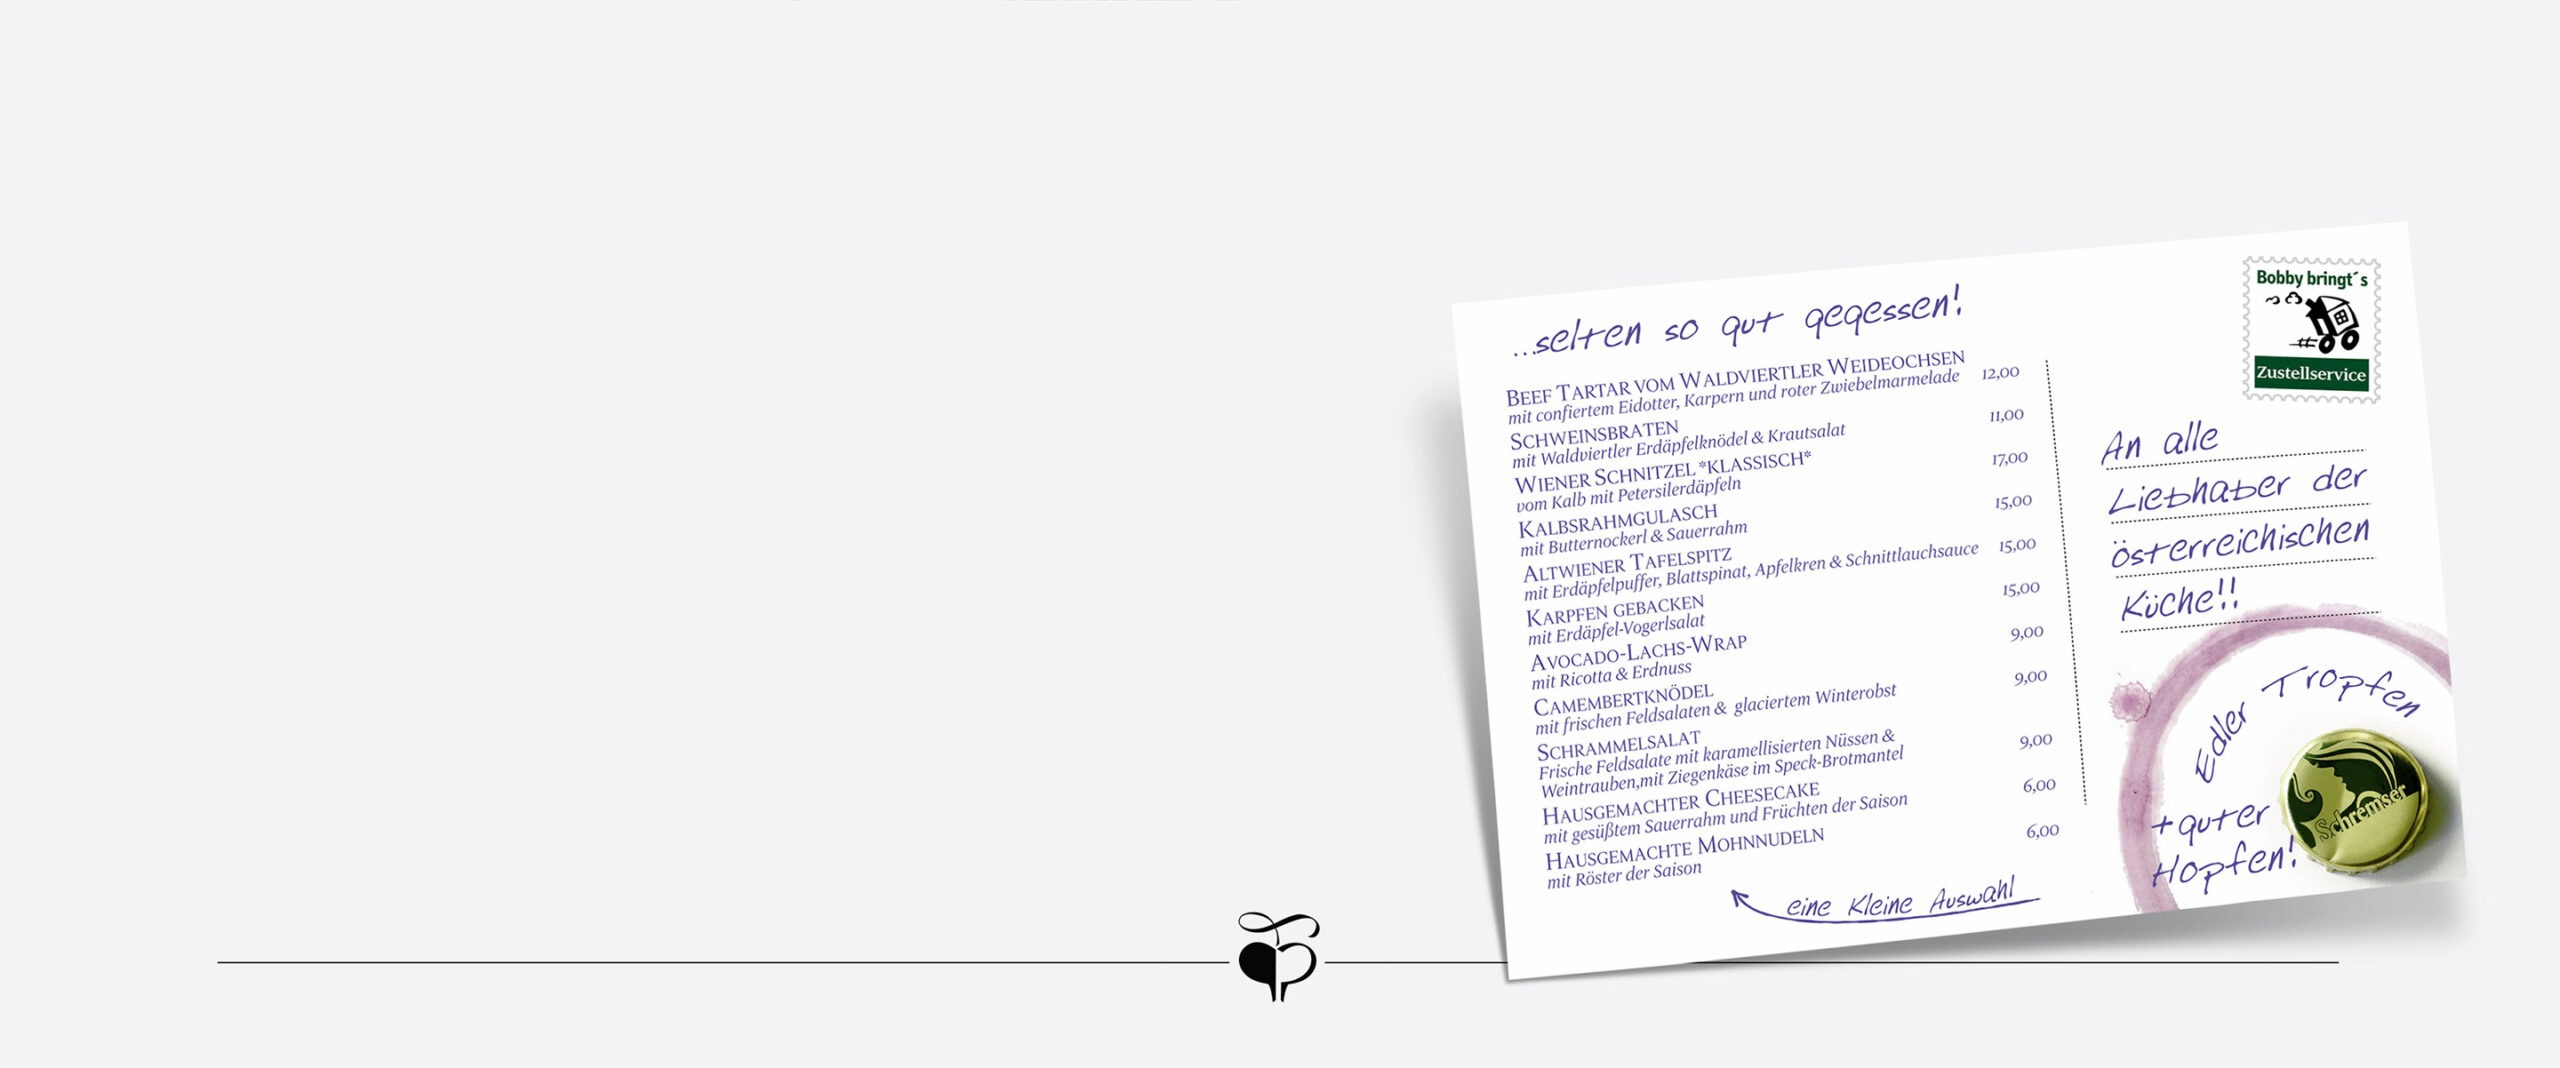 ...selten so gut gegessen!
BEEF TARTAR VOM WALDVIERTLER WEIDEOCHSEN 12,00
mit confiertem Eidotter, Karpern und roter Zwiebelmarmelade
SCHWEINSBRATEN 11,00
mit Waldviertler Erdäpfelknödel & Krautsalat
WIENER SCHNITZEL *KLASSISCH* 17,00
vom Kalb mit Petersilerdäpfeln
KALBSRAHMGULASCH 15,00
mit Butternockerl & Sauerrahm
ALTWIENER TAFELSPITZ 15,00
mit Erdäpfelpuffer, Blattspinat, Apfelkren & Schnittlauchsauce
KARPFEN GEBACKEN 15,00
mit Erdäpfel-Vogerlsalat
AVOCADO-LACHS-WRAP 9,00
mit Ricotta & Erdnuss
CAMEMBERTKNÖDEL 9,00
mit frischen Feldsalaten & glaciertem Winterobst
SCHRAMMELSALAT 9,00
Frische Feldsalate mit karamellisierten Nüssen &
Weintrauben,mit Ziegenkäse im Speck-Brotmantel
HAUSGEMACHTER CHEESECAKE 6,00
mit gesüßtem Sauerrahm und Früchten der Saison
HAUSGEMACHTE MOHNNUDELN 6,00
mit Röster der Saison
eine kleine Auswahl
Bobby bringt´s
Zustellservice
An alle
Liebhaber der
österreichischen
Küche!!
Edler Tropfen
+ guter
Hopfen!
Schremser